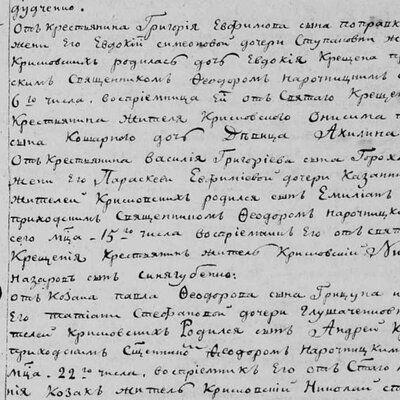 дудченю.
Отъ Крестьянина Григорія Евфимова сына поправк
жены Его Евдокіи симеоновой дочери Ступаковны ж
Крисковскихъ родилась дочь Евдокія Крещена пр
скимъ Священникомъ Феодоромъ нарочницкимъ с
6го числа, воспріемница Ей отъ Святаго Крещен
Крестьянина жителя Крисковского Онисима п
сына Кошарного дочь Дѣвица Акилина
Отъ Крестьянина Василія Григоріева сына Горох
жены Его Параскеви Евфиміевой дочери Казанн
жителей Крисковскихъ родился сынъ Емиліанъ
приходскимъ Священникомъ Феодоромъ нарочницк
сего мца 15го числа воспріемникъ Его отъ свят
Крещенія Крестьянинъ житель Крисковскій Ни
Назаровъ сынъ синягубенко:
отъ Козака павла Феодорова сына Грицуна и
Его татіаны Стефановой дочери Глушаченков
телей Крисковскихъ Родился сынъ Андрей К
приходскимъ Сщенникомъ Феодоромъ Нарочницким
Мца. 22го числа, воспріемникъ Его отъ Стаго
нія Козакъ житель Крисковскій Николай ст